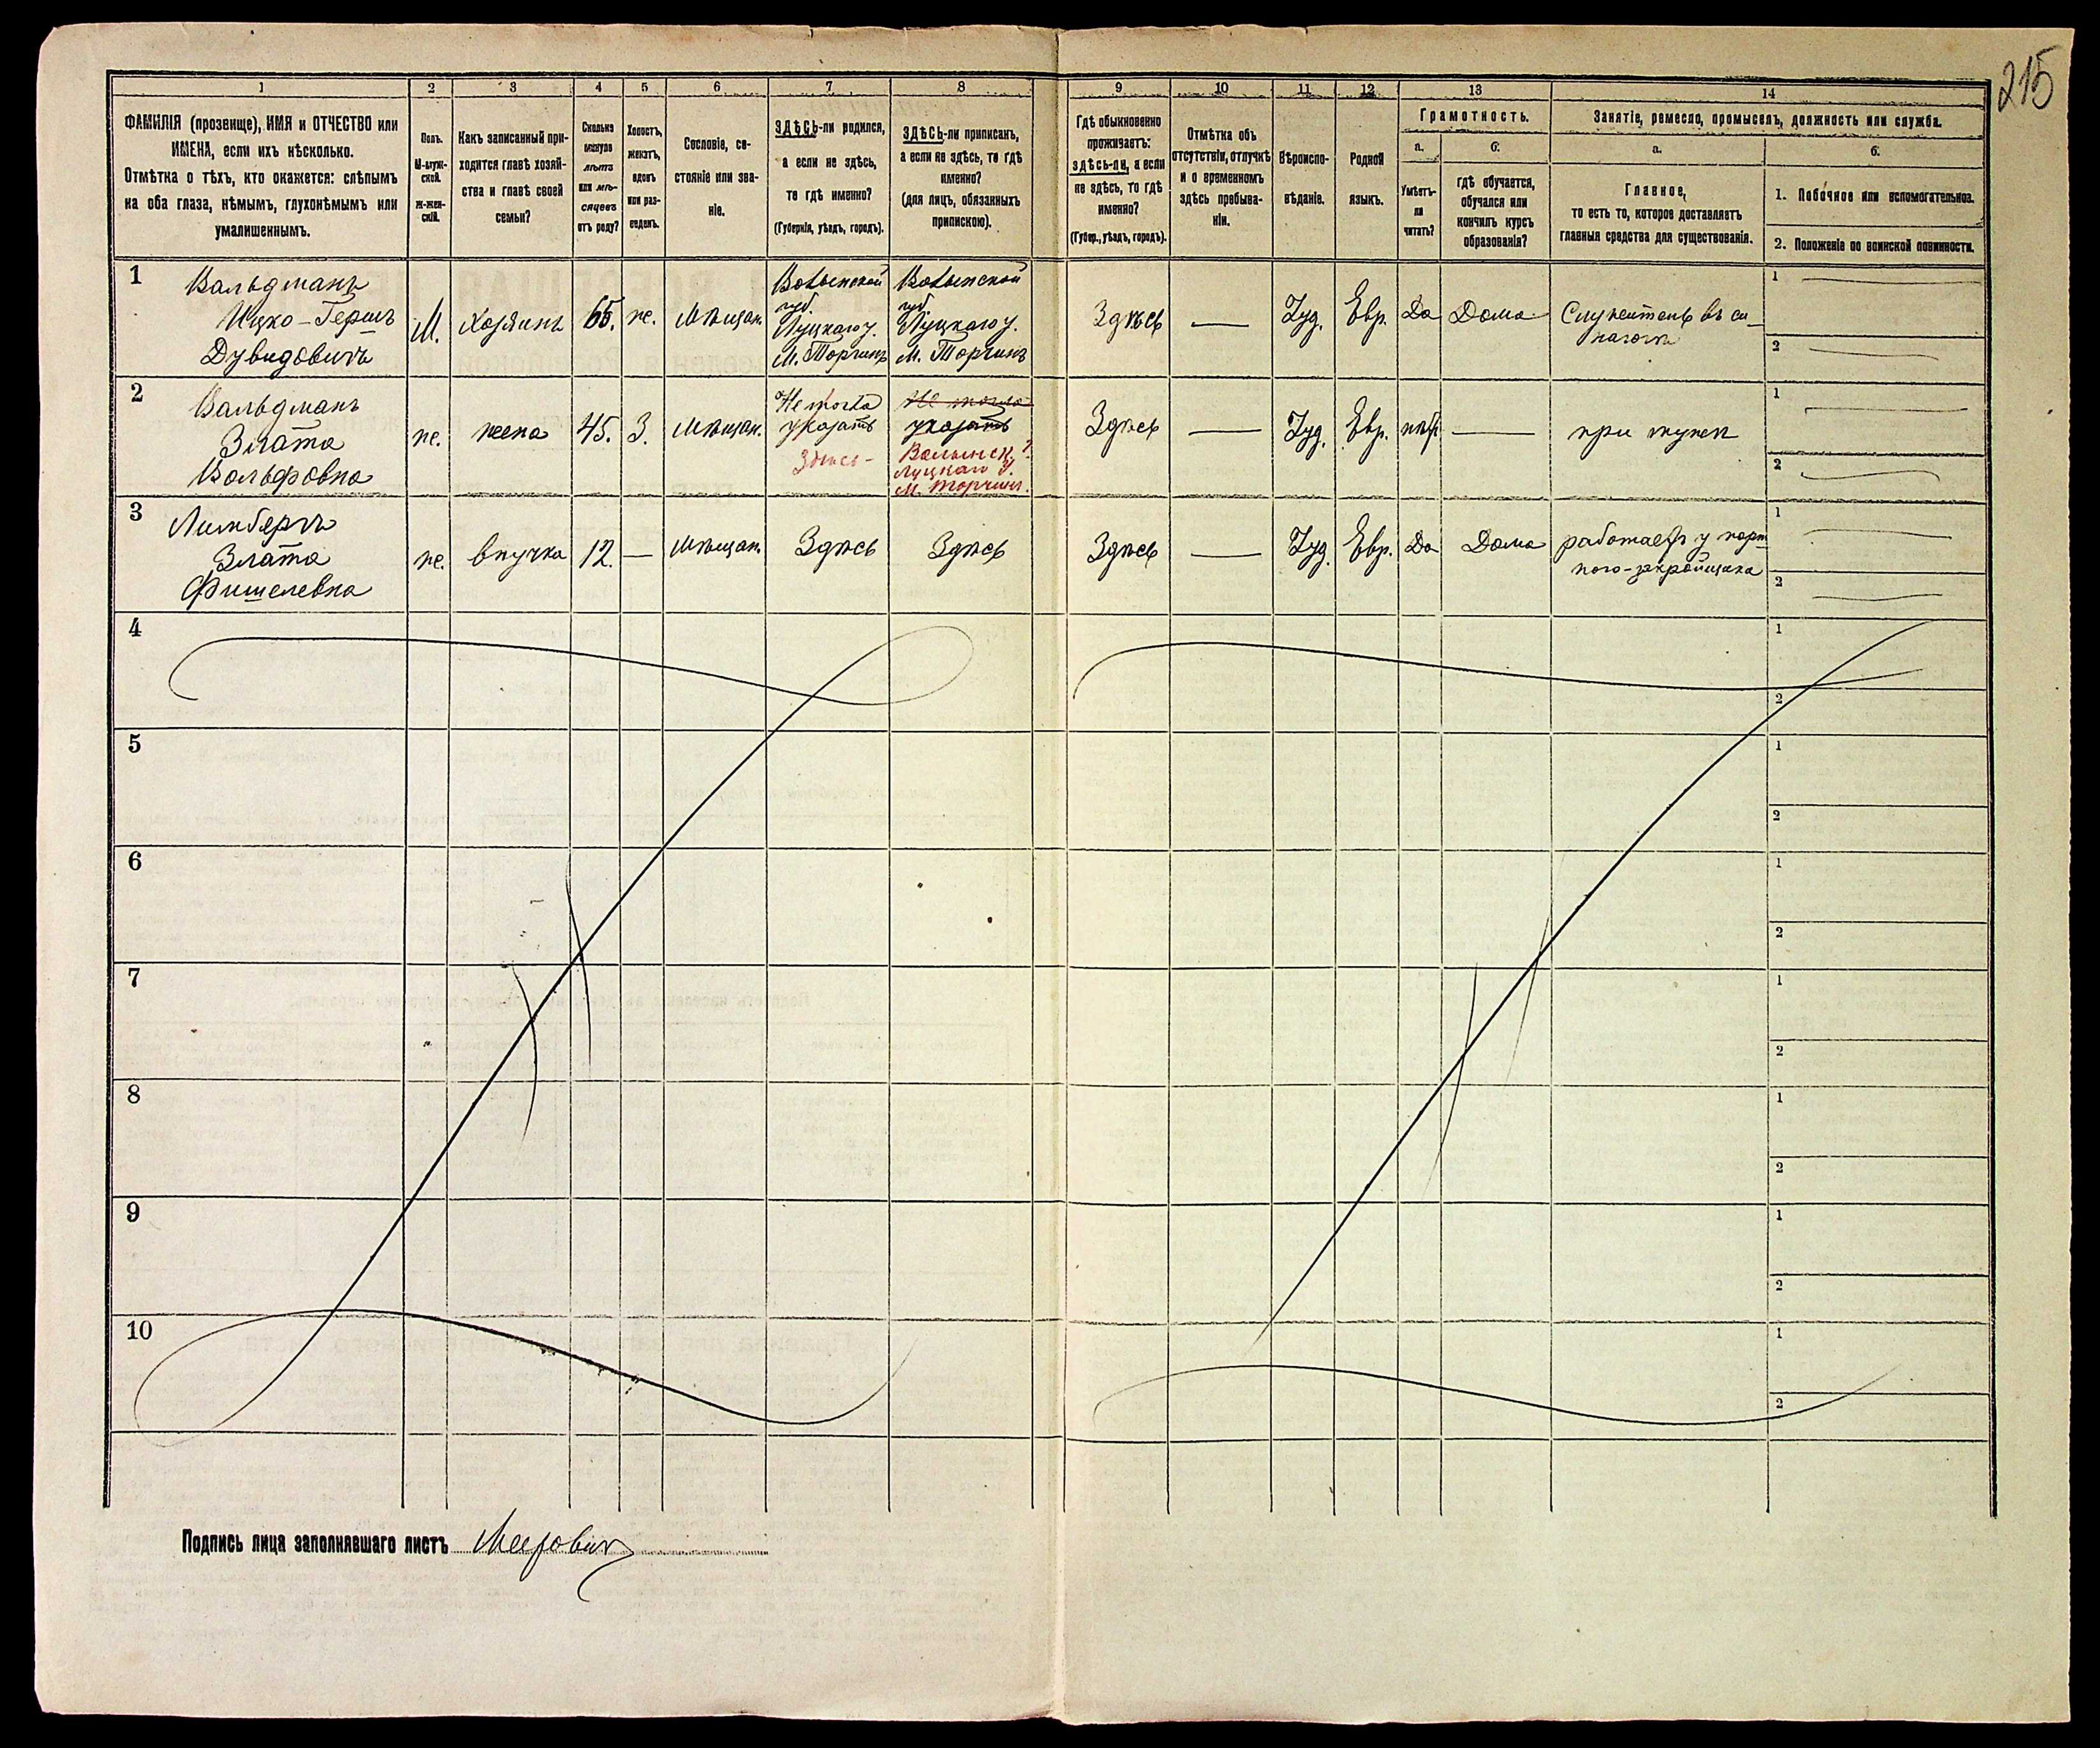 215
1 2 3 4 5 6 7 8 9 10 11 12 13 14
ФАМИЛІЯ (прозвище), ИМЯ и ОТЧЕСТВО или
ИМЕНА, если ихъ нѣсколько.
Отмѣтка о тѣхъ, кто окажется: слѣпымъ
на оба глаза, нѣмымъ, глухонѣмымъ или
умалишеннымъ.
Полъ.
М-муж-
ской.
ж-жен-
скій.
Какъ записанный при-
ходится главѣ хозяй-
ства и главѣ своей
семьи?
Сколько
минуло
лѣтъ
или мѣ-
сяцевъ
отъ роду?
Холостъ,
женатъ,
вдовъ
или раз-
веденъ.
Сословіе, со-
стояніе или зва-
ніе.
ЗДѢСЬ-ли родился,
а если не здѣсь,
то гдѣ именно?
(Губернія, уѣздъ, городъ).
ЗДѢСЬ-ли приписанъ,
а если не здѣсь, то гдѣ
именно?
(для лицъ, обязанныхъ
припискою).
Гдѣ обыкновенно
проживаетъ:
здѣсь-ли, а если
не здѣсь, то гдѣ
именно?
(Губер., уѣздъ, городъ).
Отмѣтка объ
отсутствіи, отлучкѣ
и о временномъ
здѣсь пребыва-
ніи.
Вѣроиспо-
вѣданіе.
Родной
языкъ.
Грамотность.
а.
Умѣетъ-
ли
читать?
б.
гдѣ обучается,
обучался или
кончилъ курсъ
образованія?
Занятіе, ремесло, промыселъ, должность или служба.
а.
Главное,
то есть то, которое доставляетъ
главныя средства для существованія.
б.
1. Побочное или вспомогательное.
2. Положеніе по воинской повинности.
1
Вальдманъ
Ицко-Гершъ
Дувидовичъ
М.
Хозяинъ
65.
ж.
Мѣщан.
Волынской
губ.
Луцкаго у.
М. Торчинъ
Волынской
губ.
Луцкаго у.
М. Торчинъ
Здѣсь
—
Іуд.
Евр.
Да
Дома
Служитель въ си-
нагогѣ
1
2
2
Вальдманъ
Злата
Вольфовна
ж.
жена
45.
З.
Мѣщан.
Не могла
указать
Здѣсь -
Не могла
указать
Волынск. г.
Луцкаго у.
М. Торчинъ.
Здѣсь
—
Іуд.
Евр.
нѣт
—
при мужѣ
1
2
3
Лимбергъ
Злата
Фишелевна
ж.
внучка
12.
—
Мѣщан.
Здѣсь
Здѣсь
Здѣсь
—
Іуд.
Евр.
Да
Дома
работаетъ у порт-
ного-закройщика
1
2
4
1
2
5
1
2
6
1
2
7
1
2
8
1
2
9
1
2
10
1
2
Подпись лица заполнявшаго листъ Меерович